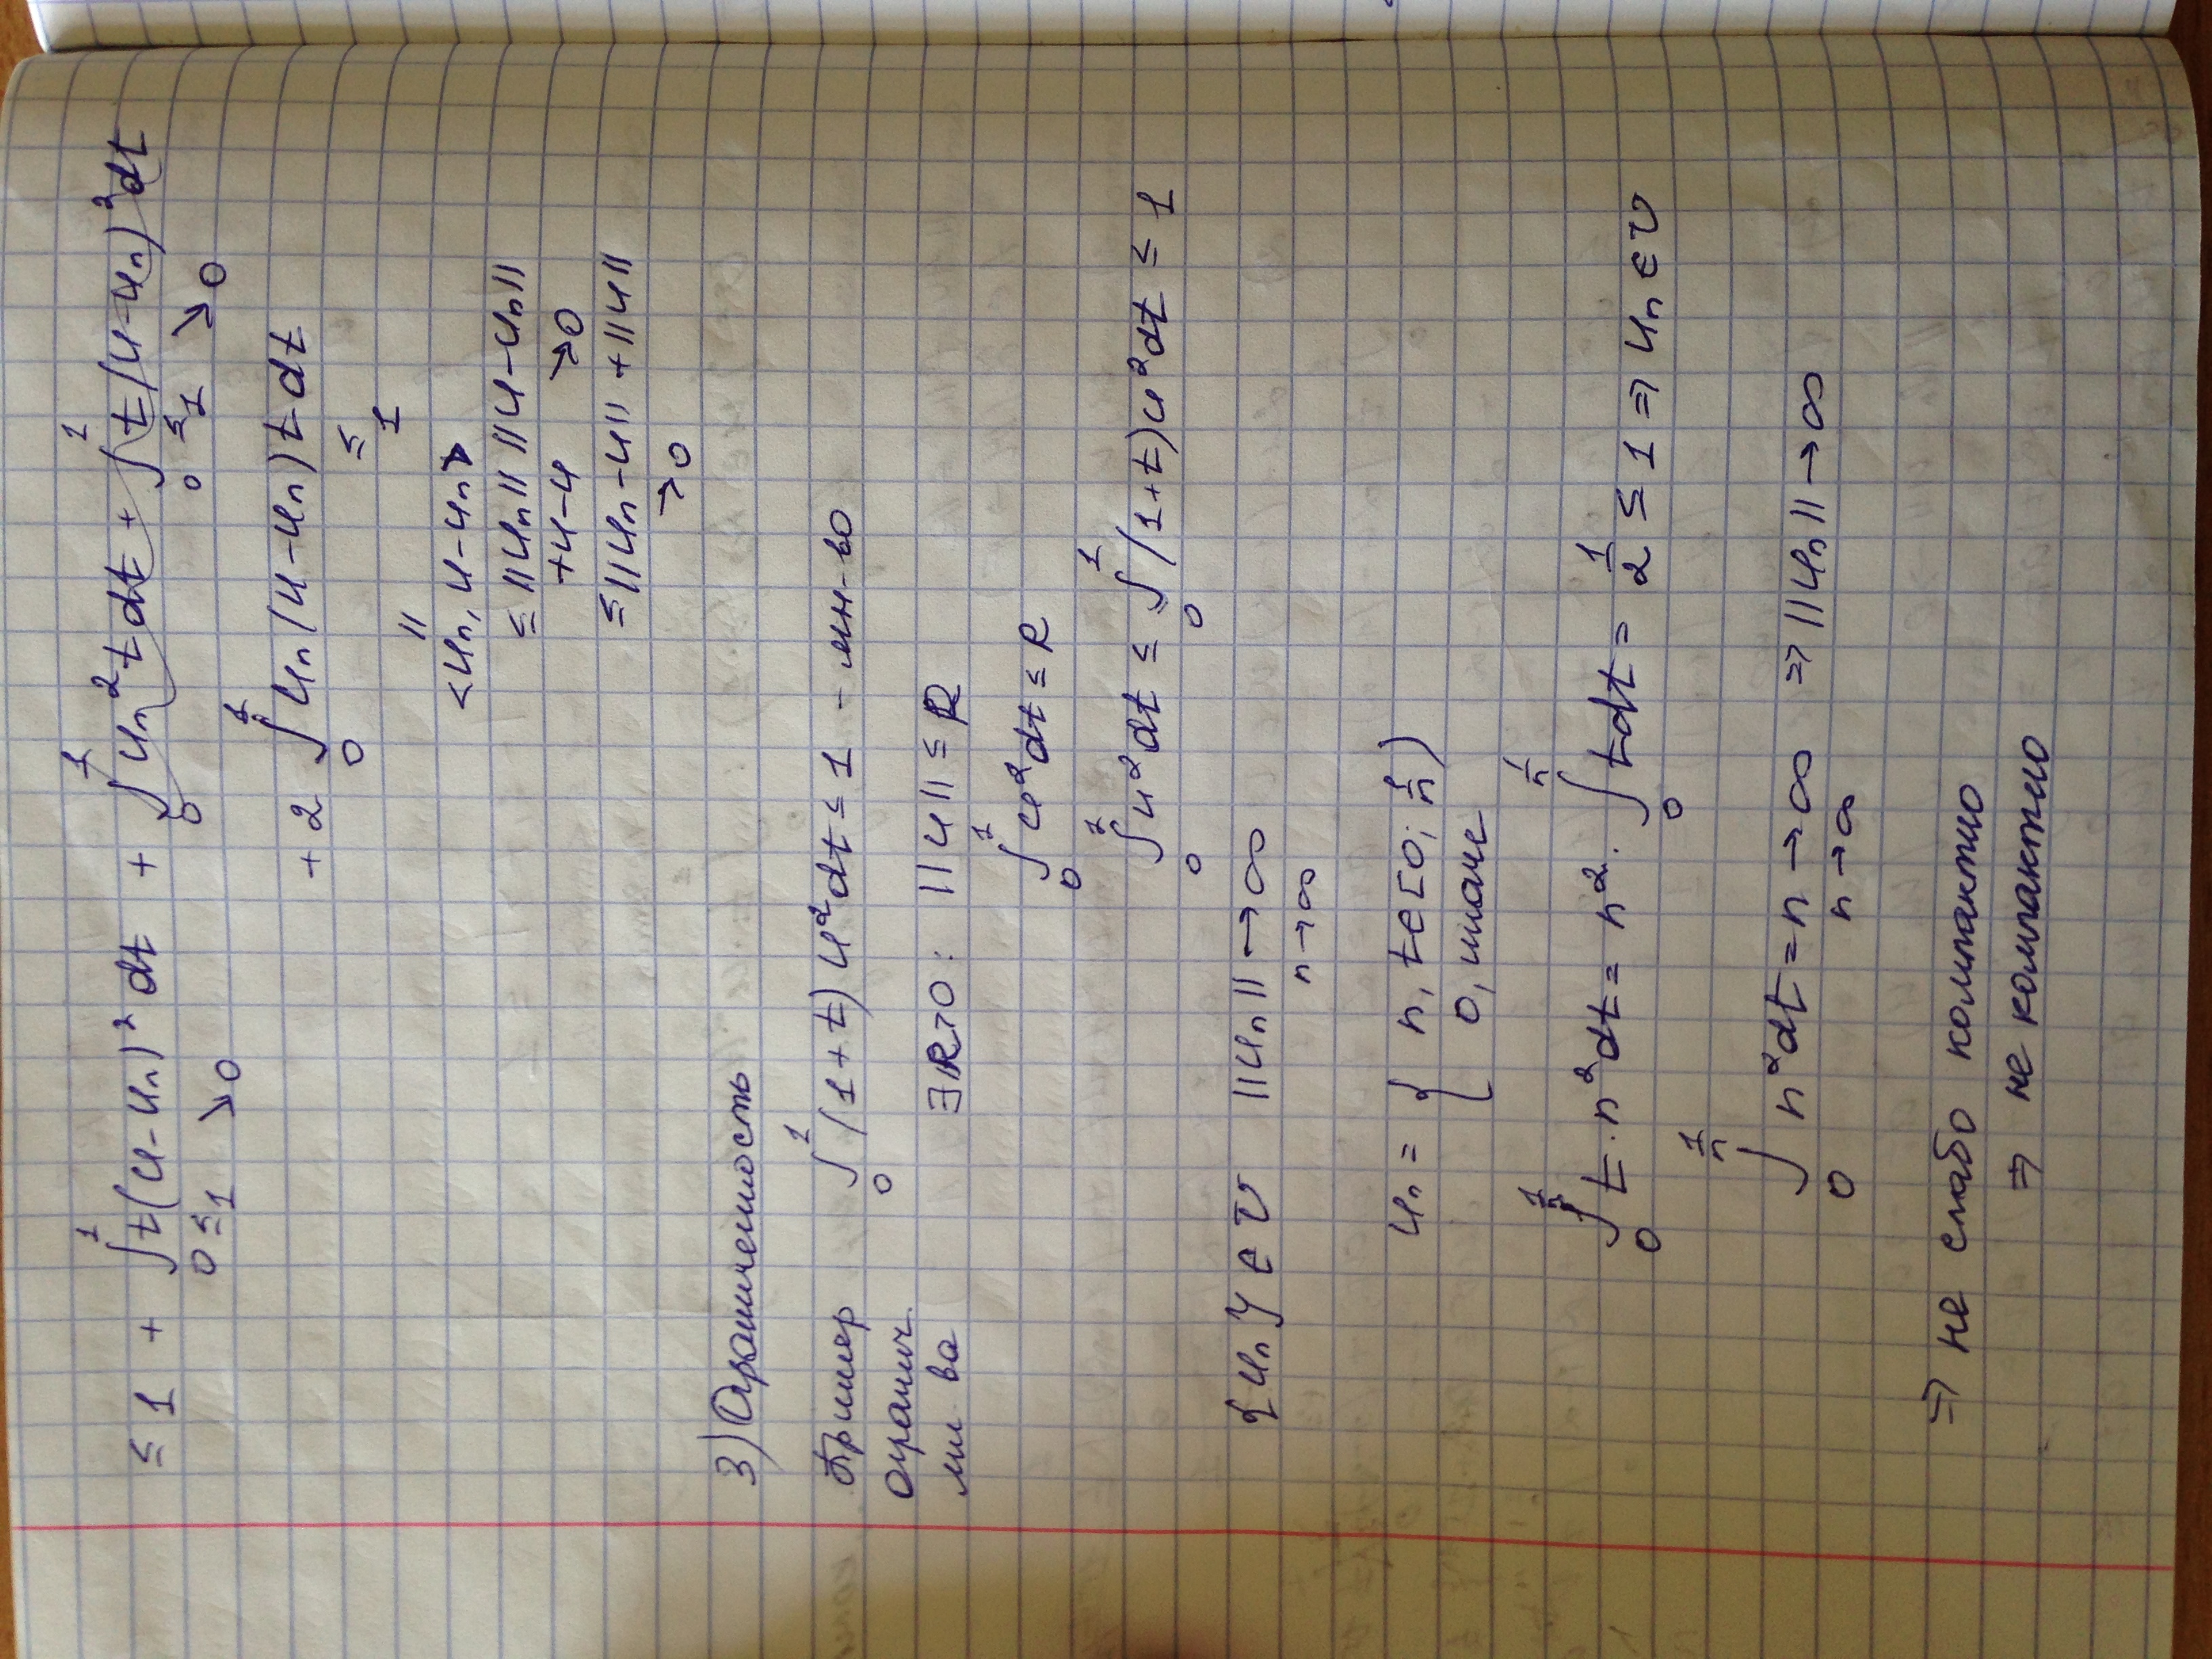 ≤ 1 + ∫₀¹ t(u-uₙ)² dt + ∫₀¹ uₙ² t dt + ∫₀¹ t(u-uₙ)² dt
≤ 1 ↘ 0 ≤ 1 ↘ 0
+ 2 ∫₀¹ uₙ(u-uₙ) t dt
≤ 1
||
<uₙ, u-uₙ>
≤ ||uₙ|| ||u-uₙ||
+u-u ↘0
≤ ||uₙ-u|| + ||u||
↘0
3) Ограниченность
Пример ∫₀¹ (1+t) u² dt ≤ 1 - мн-во
огранич ∃ R>0: ||u|| ≤ R
мн-ва
∫₀¹ u² dt ≤ R
∫₀¹ u² dt ≤ ∫₀¹ (1+t) u² dt ≤ 1
{uₙ} ∈ U ||uₙ|| → ∞
n→∞
uₙ = { n, t∈[0; 1/n)
0, иначе
∫₀^{1/n} t·n² dt = n² · ∫₀^{1/n} t dt = 1/2 ≤ 1 ⇒ uₙ ∈ U
∫₀^{1/n} n² dt = n → ∞ ⇒ ||uₙ|| → ∞
n→∞
⇒ не слабо компактно
⇒ не компактно